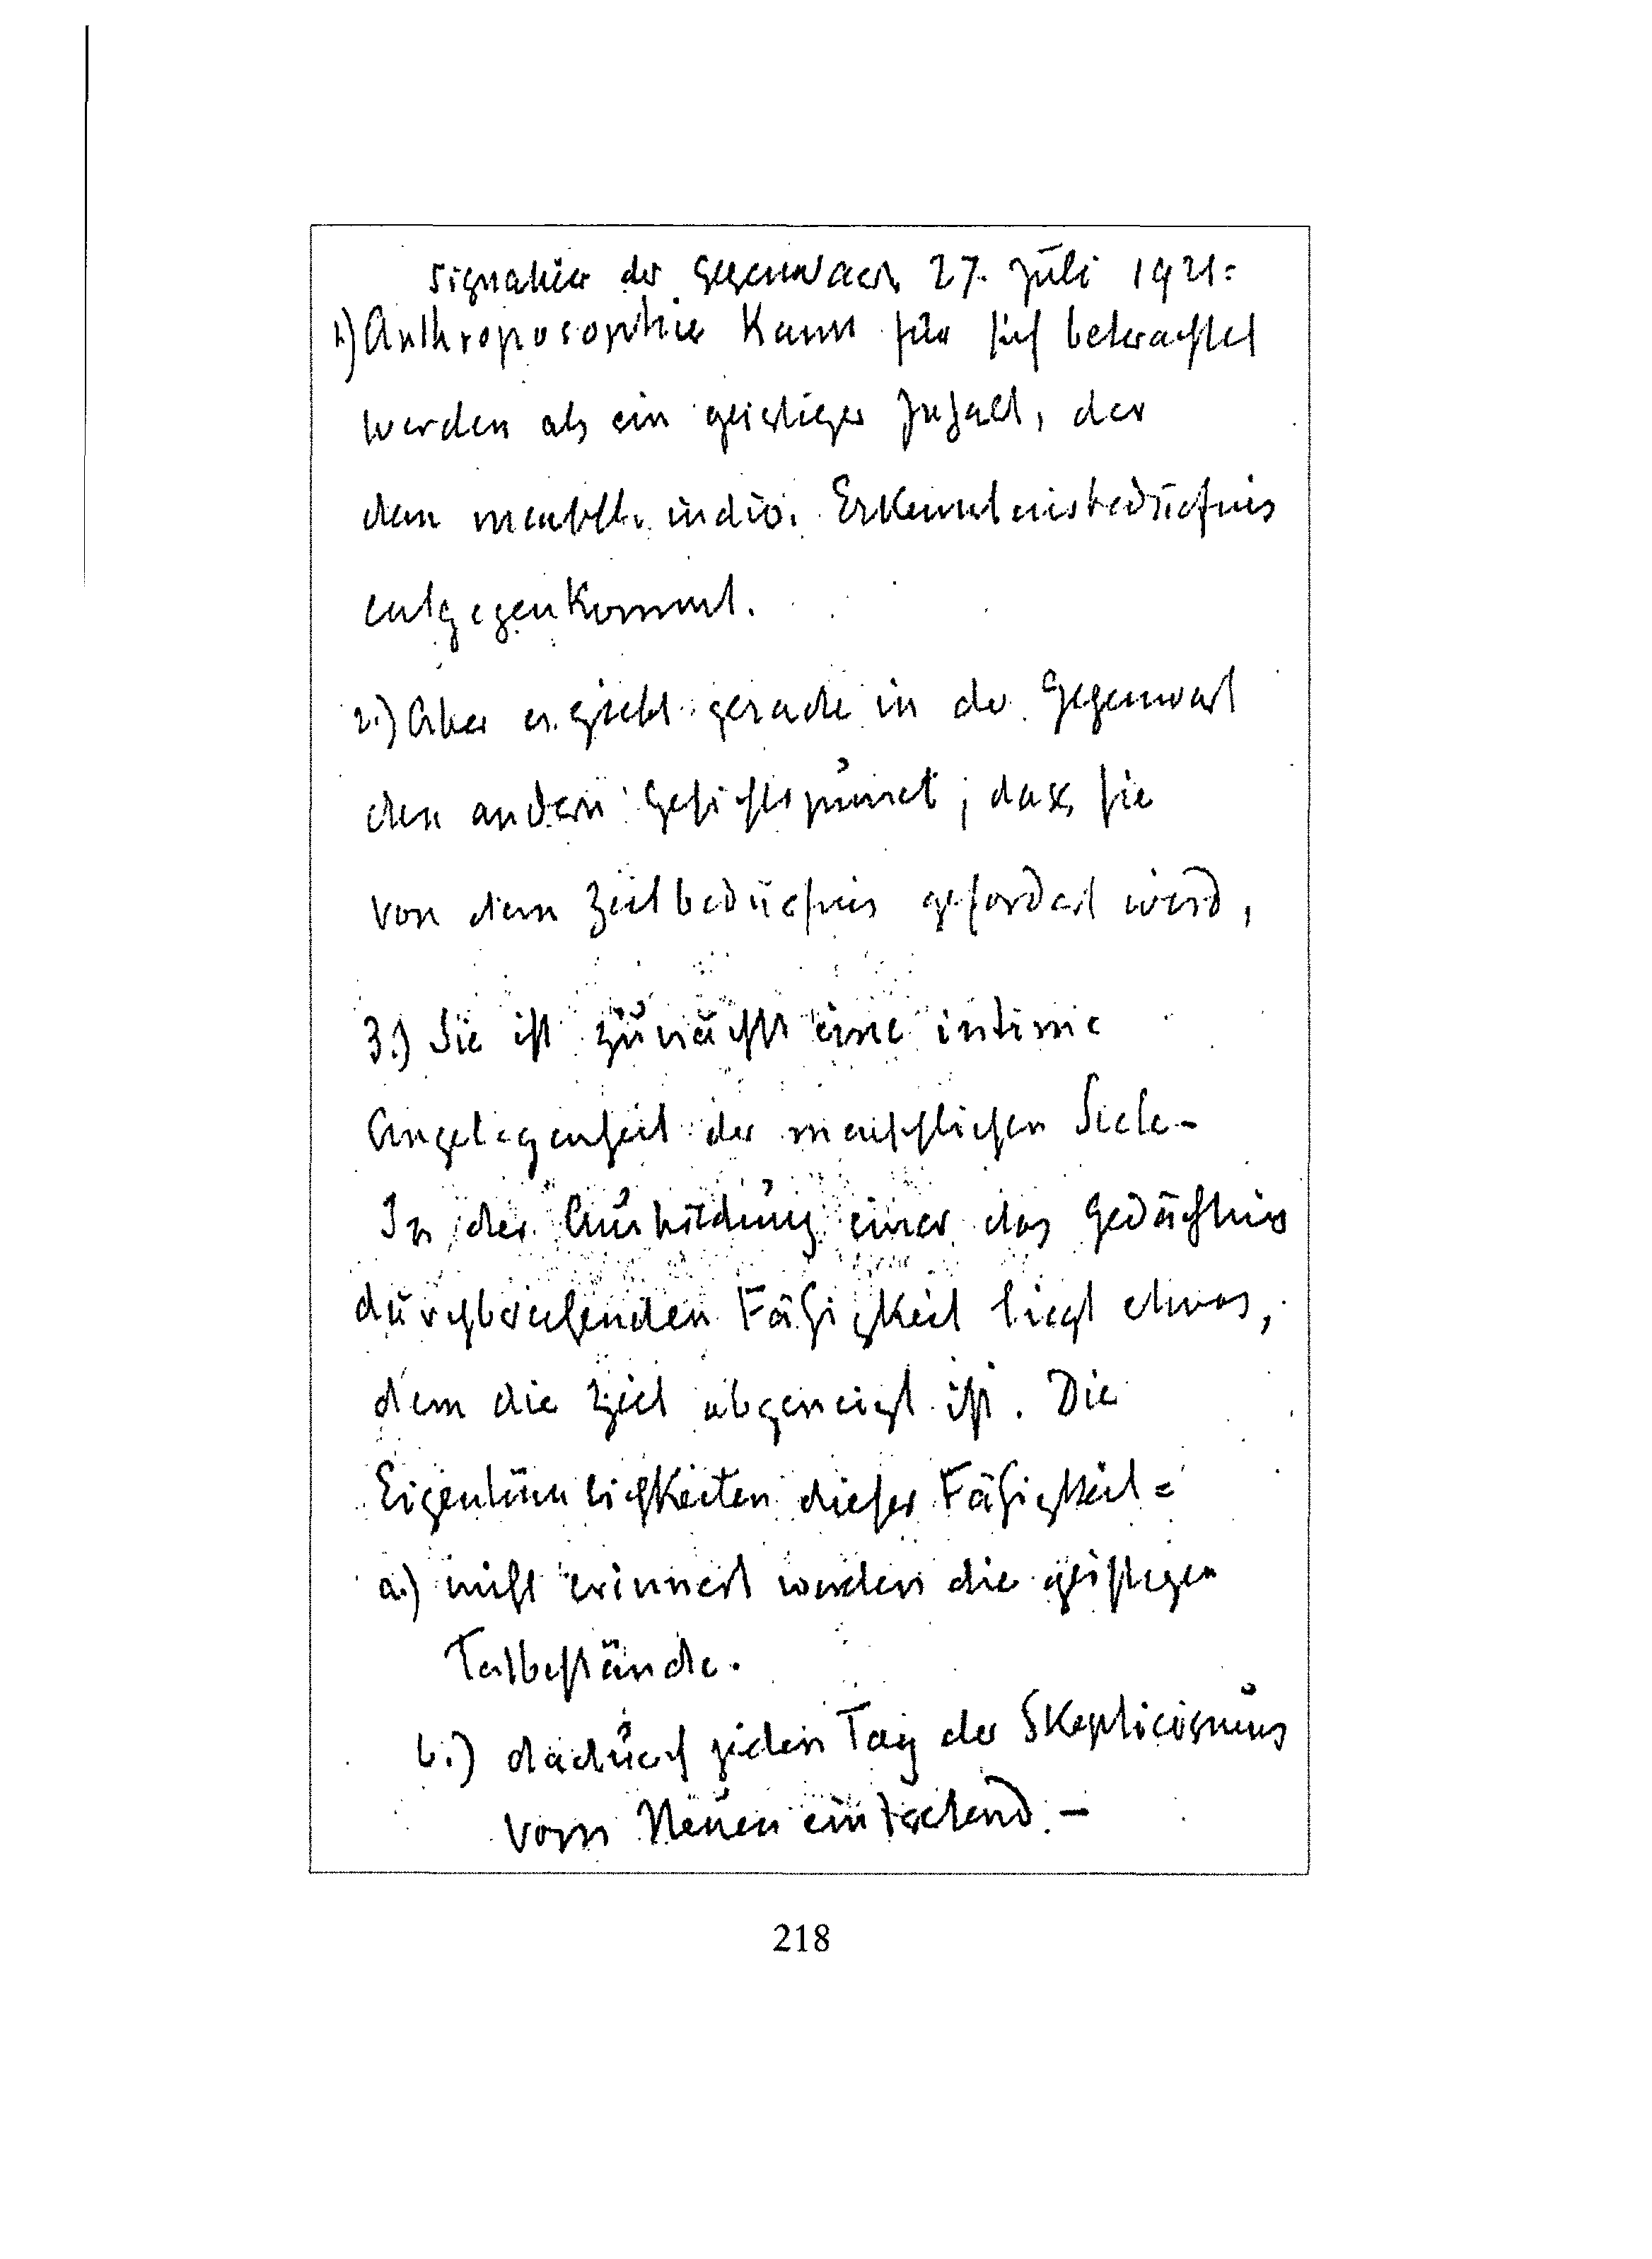 Signatur der Gegenwart, 27. Juli 1921:
1.) Anthroposophie kann für sich betrachtet
werden als ein geistiger Inhalt, der
dem menschl. indiv. Erkenntnisbedürfnis
entgegenkommt.
2.) Aber es giebt gerade in der Gegenwart
den andern Gesichtspunct, dass sie
von dem Zeitbedürfnis gefordert wird,
3.) Sie ist zunächst eine intime
Angelegenheit der menschlichen Seele -
In der Ausbildung einer das Gedächtnis
durchbrechenden Fähigkeit liegt etwas,
dem die Zeit abgeneigt ist. Die
Eigentümlichkeiten dieser Fähigkeit =
a.) nicht erinnert werden die geistigen
Tatbestände.
b.) dadurch jeden Tag der Skepticismus
vom Neuen eintretend. -
218